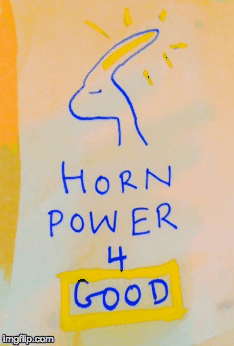 HORN
POWER
4
GOOD
imgflip.com